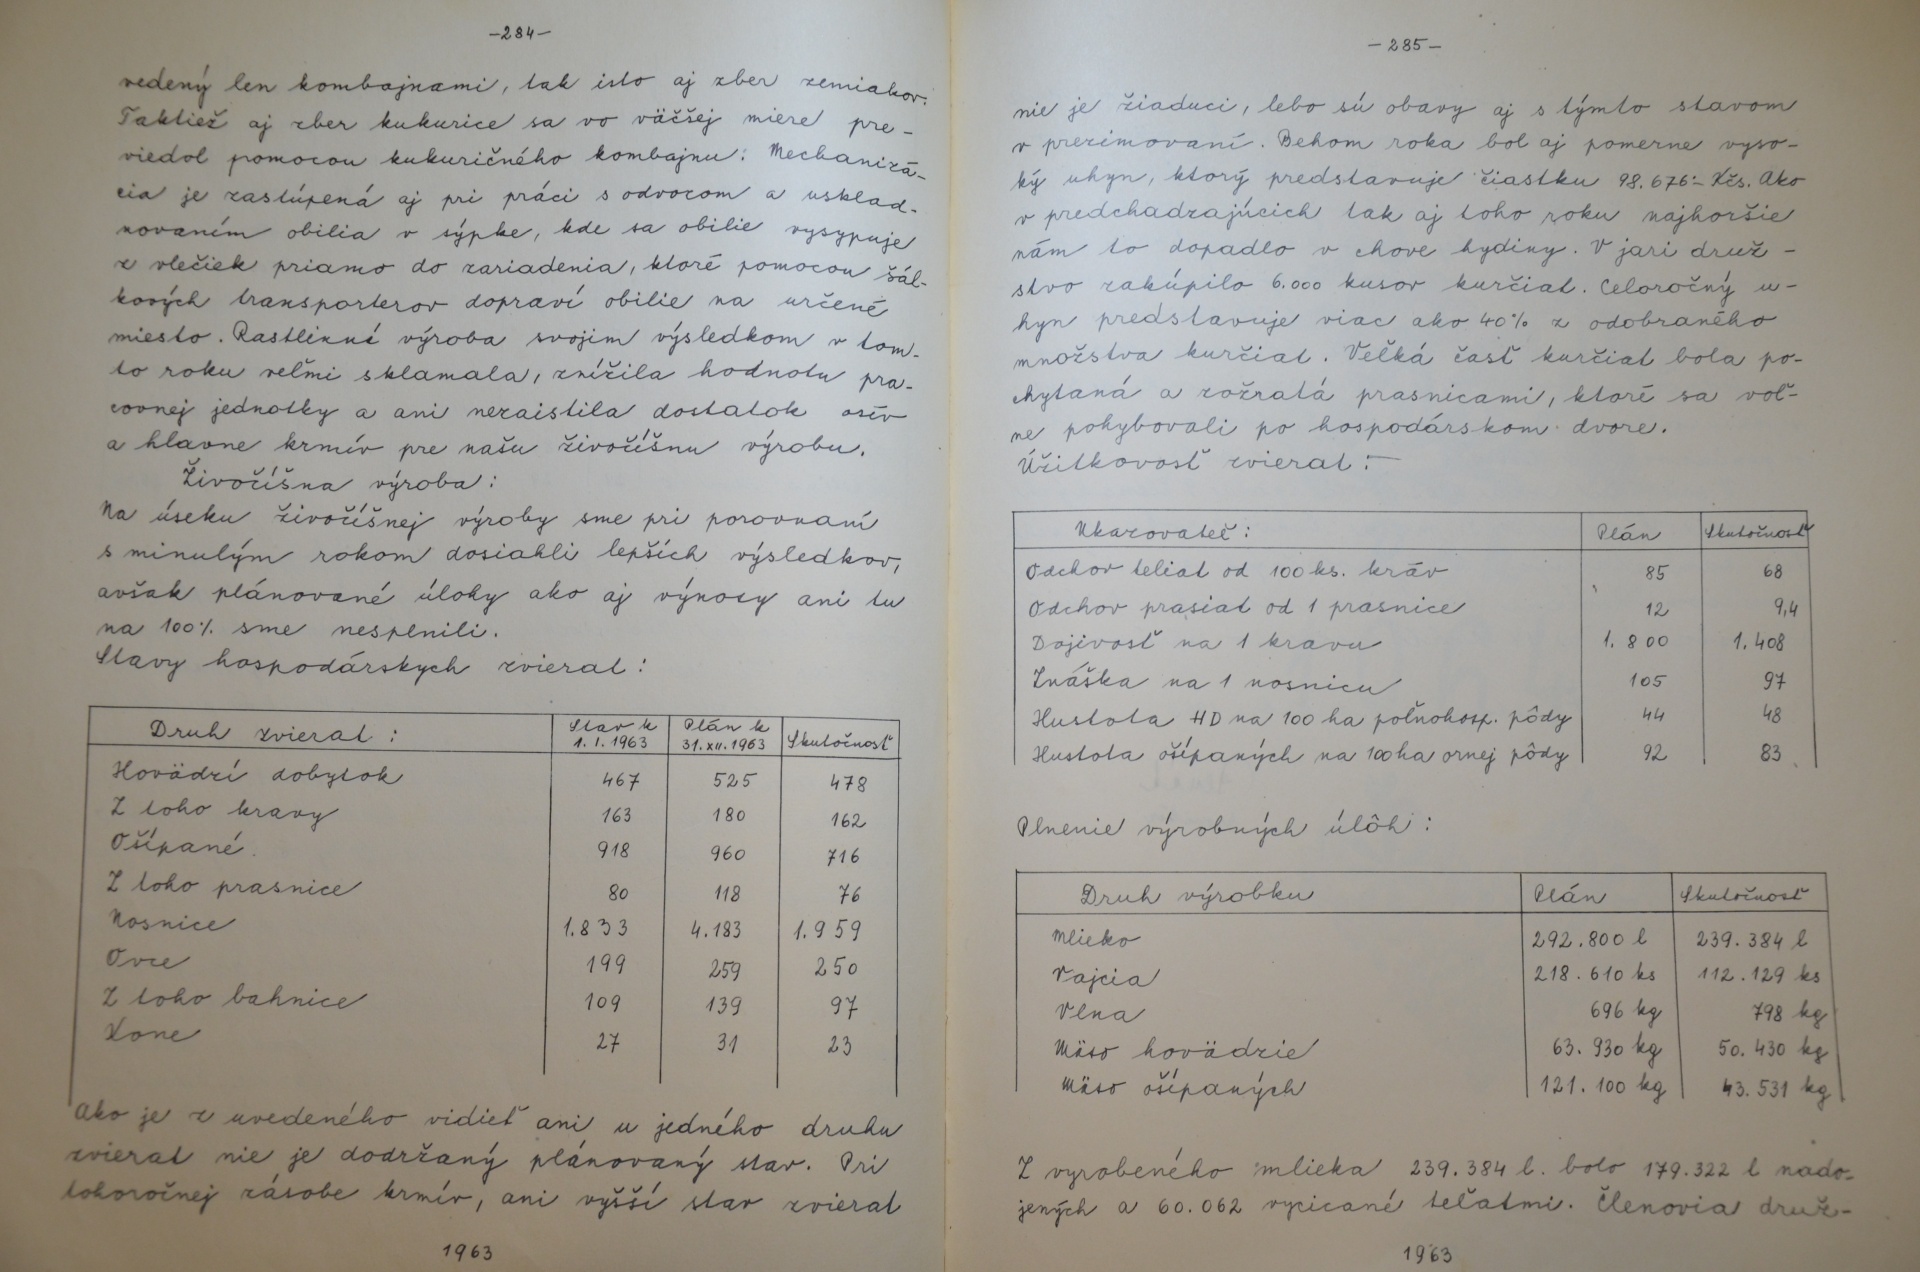 -284-
vedený len kombajnami, tak isto aj zber zemiakov.
Taktiež aj zber kukurice sa vo väčšej miere pre-
viedol pomocou kukuričného kombajnu. Mechanizá-
cia je zastúpená aj pri práci s odvozom a usklad-
novaním obilia v sýpke, kde sa obilie vysypuje
z vlečiek priamo do zariadenia, ktoré pomocou šál-
kových transporterov dopraví obilie na určené
miesto. Rastlinná výroba svojim výsledkom v tom-
to roku veľmi sklamala, znížila hodnotu pra-
covnej jednotky a ani nezaistila dostatok osív
a hlavne krmív pre našu živočíšnu výrobu.
Živočíšna výroba:
Na úseku živočíšnej výroby sme pri porovnaní
s minulým rokom dosiahli lepších výsledkov,
avšak plánované úlohy ako aj výnosy ani tu
na 100% sme nesplnili.
Stavy hospodárskych zvierat:
Druh zvierat: Stav k 1.1.1963 Plán k 31.XII.1963 Skutočnosť
Hovädzí dobytok 467 525 478
Z toho kravy 163 180 162
Ošípané 918 960 716
Z toho prasnice 80 118 76
Nosnice 1.833 4.183 1.959
Ovce 199 259 250
Z toho bahnice 109 139 97
Kone 27 31 23
Ako je z uvedeného vidieť ani u jedného druhu
zvierat nie je dodržaný plánovaný stav. Pri
tohoročnej zásobe krmív, ani vyšší stav zvierat
1963
-285-
nie je žiaduci, lebo sú obavy aj s týmto stavom
v prezimovaní. Behom roka bol aj pomerne vyso-
ký uhyn, ktorý predstavuje čiastku 98.676.- Kčs. Ako
v predchadzajúcich tak aj toho roku najhoršie
nám to dopadlo v chove hydiny. V jari druž-
stvo zakúpilo 6.000 kusov kurčiat. Celoročný u-
hyn predstavuje viac ako 40% z odobraného
množstva kurčiat. Veľká časť kurčiat bola po-
chytaná a zožratá prasnicami, ktoré sa voľ-
ne pohybovali po hospodárskom dvore.
Úžitkovosť zvierat:-
Ukazovateľ: Plán Skutočnosť
Odchov teliat od 100 ks. kráv 85 68
Odchov prasiat od 1 prasnice 12 9,4
Dojivosť na 1 kravu 1.800 1.408
Znáška na 1 nosnicu 105 97
Hustota HD na 100 ha poľnohosp. pôdy 44 48
Hustota ošípaných na 100 ha ornej pôdy 92 83
Plnenie výrobných úlôh:
Druh výrobku Plán Skutočnosť
Mlieko 292.800 l 239.384 l
Vajcia 218.610 ks 112.129 ks
Vlna 696 kg 798 kg
Mäso hovädzie 63.930 kg 50.430 kg
Mäso ošípaných 121.100 kg 43.531 kg
Z vyrobeného mlieka 239.384 l. bolo 179.322 l nado-
jených a 60.062 vycicané teľatmi. Členovia druž-
1963